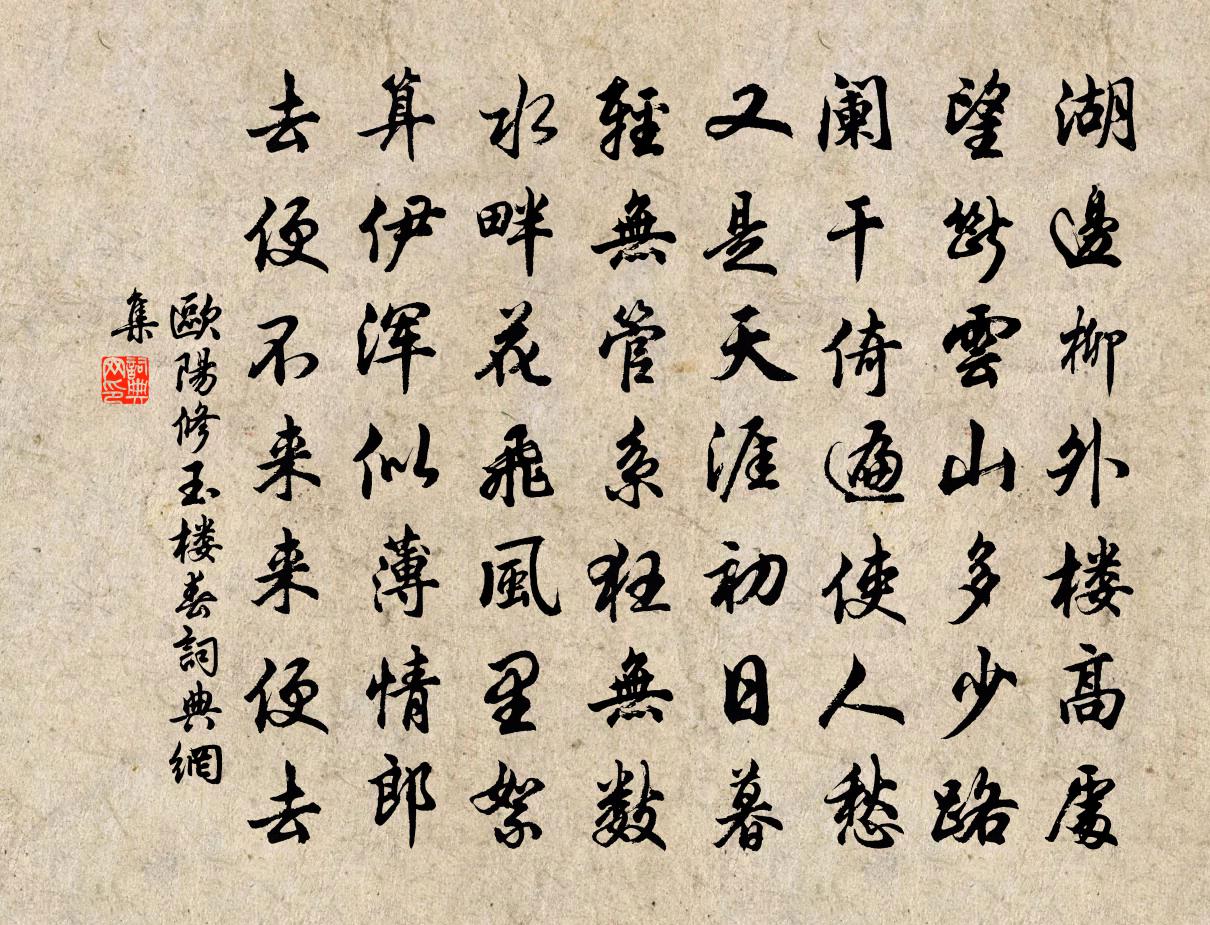 湖邊柳外楼高處
望斷雲山多少路
阑干倚遍使人愁
又是天涯初日暮
輕無管系狂無數
水畔花飛風里絮
算伊浑似薄情郎
去便不来来便去
歐陽修玉楼春詞典網
集
詞典網印